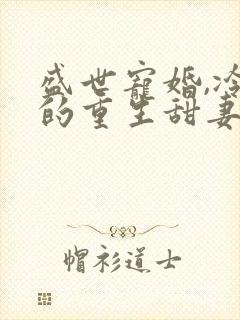 盛世寵婚,冷
的重生甜妻
帽衫道士